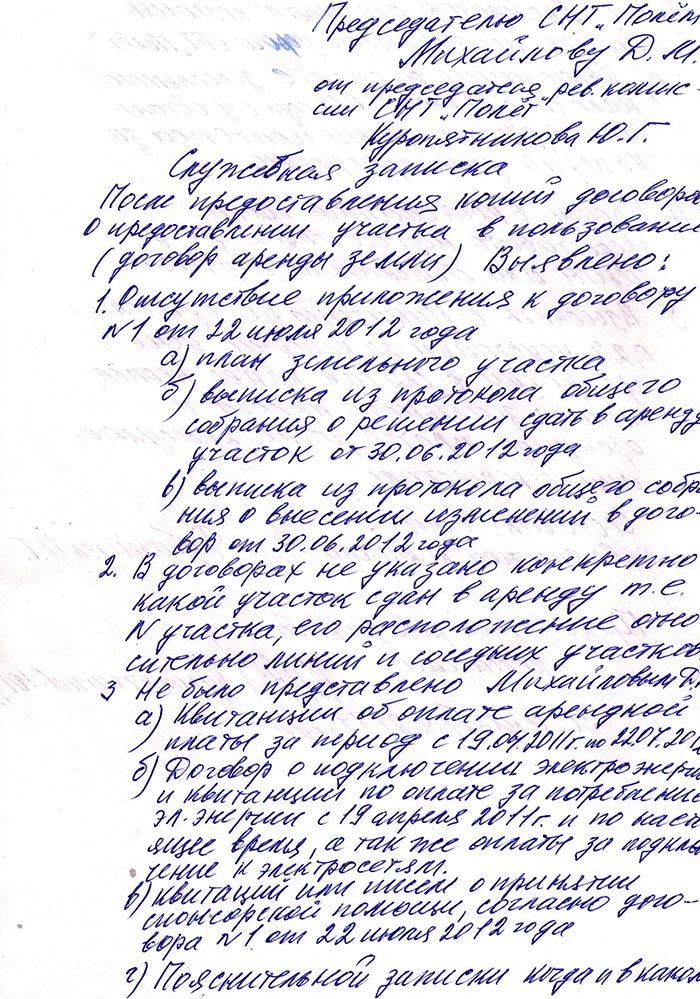 Председателю СНТ „Полёт
Михайлову Д. М.
от председателя рев. комис-
сии СНТ „Полёт"
Куропятникова Ю. Г.
Служебная записка
После предоставления копий договора
о предоставлении участка в пользование
(договор аренды земли) Выявлено:
1. Отсутствие приложения к договору
N1 от 22 июля 2012 года
а) план земельного участка
б) выписка из протокола общего
собрания о решении сдать в аренду
участок от 30.06.2012 года
в) выписка из протокола общего собра
ния о внесении изменений в дого-
вор от 30.06.2012 года
2. В договорах не указано конкретно
какой участок сдан в аренду т.е.
N участка, его расположение отно
сительно линий и соседних участков
3 Не было представлено Михайловым
а) Квитанции об оплате арендной
платы за период с 19.04.2011г. по 22.07.201
б) Договор о подключении электроэнерги
и квитанций по оплате за потребление
эл. энергии с 19 апреля 2011г. и по наст
ящее время, а так же оплаты за подклю
чение к электросетям.
в) квитаций или писем о принятии
спонсорской помощи, согласно дого-
вора N1 от 22 июля 2012 года
г) Пояснительной записки когда и в каком